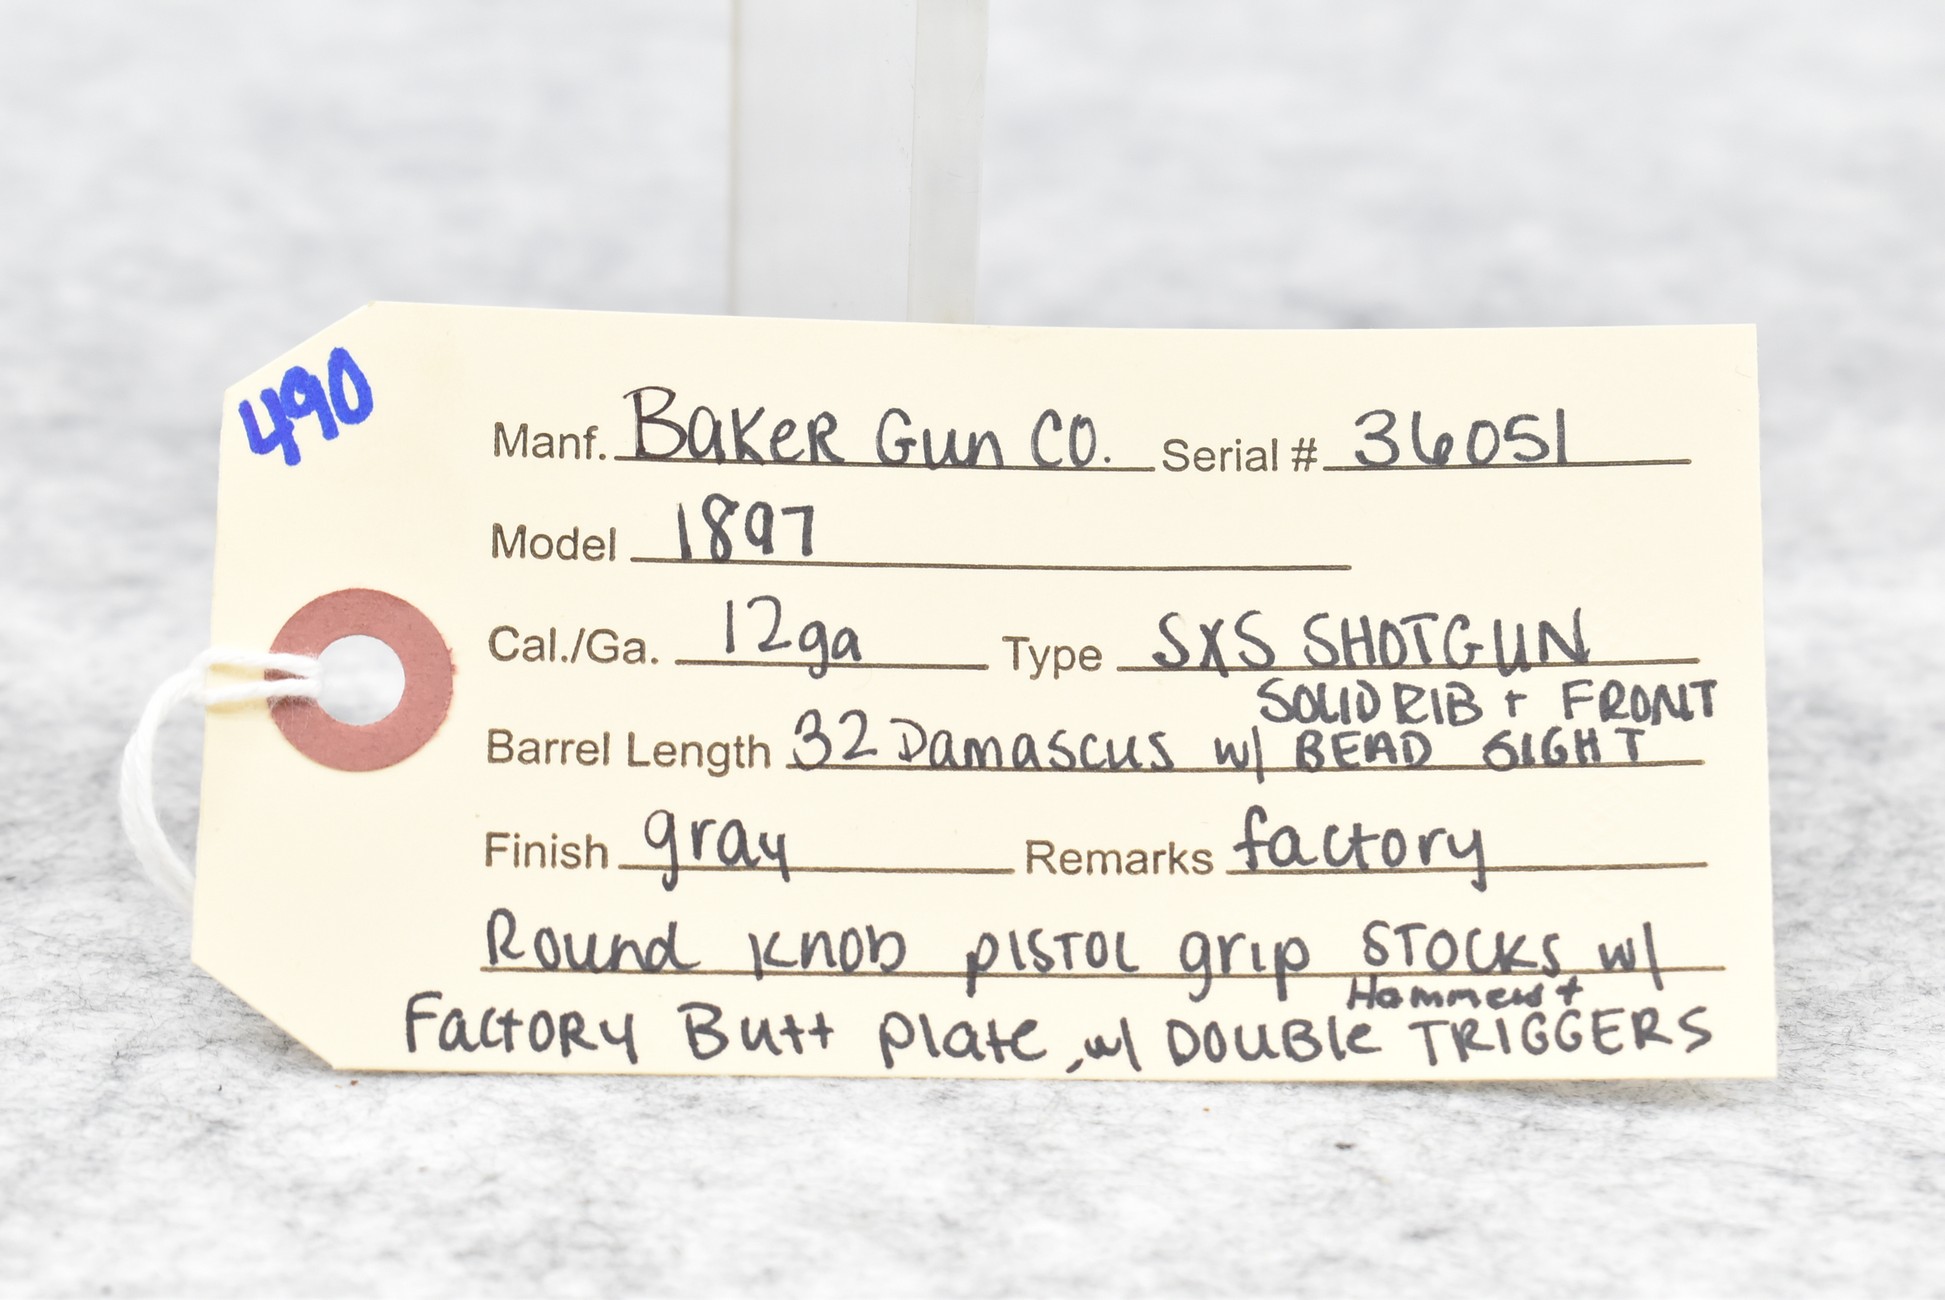 490
Manf. Baker Gun CO. Serial # 36051
Model 1897
Cal./Ga. 12ga Type SXS SHOTGUN
SOLID RIB + FRONT
Barrel Length 32 Damascus w/ BEAD SIGHT
Finish gray Remarks factory
Round Knob PISTOL grip STOCKS w/
Hammers +
Factory Butt Plate, w/ DOUBLE TRIGGERS